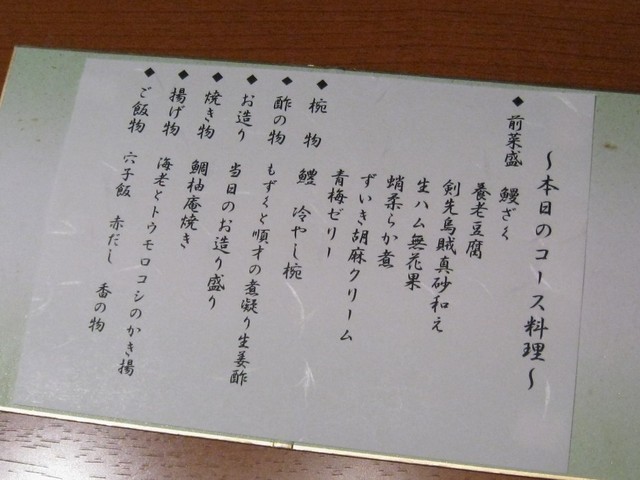 ～本日のコース料理～
◆ 前菜盛 鰻ざく
養老豆腐
剣先烏賊真砂和え
生ハム無花果
蛸柔らか煮
ずいき胡麻クリーム
青梅ゼリー
◆ 椀物 鱧 冷やし椀
◆ 酢の物 もずくと順才の煮凝り生姜酢
◆ お造り 当日のお造り盛り
◆ 焼き物 鯛柚庵焼き
◆ 揚げ物 海老とトウモロコシのかき揚
◆ ご飯物 穴子飯 赤だし 香の物